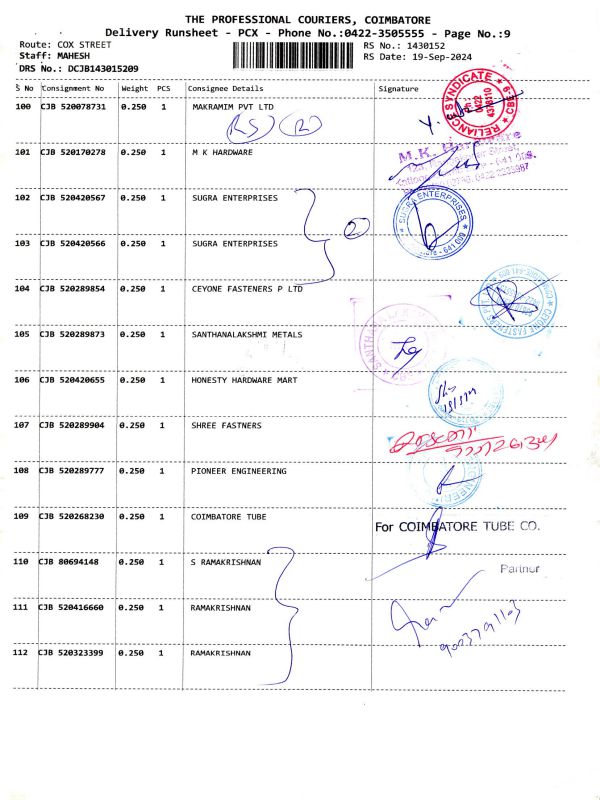 THE PROFESSIONAL COURIERS, COIMBATORE
Delivery Runsheet - PCX - Phone No.:0422-3505555 - Page No.:9
Route: COX STREET
RS No.: 1430152
Staff: MAHESH
RS Date: 19-Sep-2024
DRS No.: DCJB143015209
S No Consignment No Weight PCS Consignee Details Signature
100 CJB 520078731 0.250 1 MAKRAMIM PVT LTD
RELIANCE SYNDICATE
Ph: 0422 4378110
CBE
101 CJB 520170278 0.250 1 M K HARDWARE
M.K. Hardware
102 CJB 520420567 0.250 1 SUGRA ENTERPRISES
SUGRA ENTERPRISES
2
103 CJB 520420566 0.250 1 SUGRA ENTERPRISES
104 CJB 520289854 0.250 1 CEYONE FASTENERS P LTD
105 CJB 520289873 0.250 1 SANTHANALAKSHMI METALS
106 CJB 520420655 0.250 1 HONESTY HARDWARE MART
107 CJB 520289904 0.250 1 SHREE FASTNERS
108 CJB 520289777 0.250 1 PIONEER ENGINEERING
109 CJB 520268230 0.250 1 COIMBATORE TUBE
For COIMBATORE TUBE CO.
110 CJB 80694148 0.250 1 S RAMAKRISHNAN
Partner
111 CJB 520416660 0.250 1 RAMAKRISHNAN
112 CJB 520323399 0.250 1 RAMAKRISHNAN